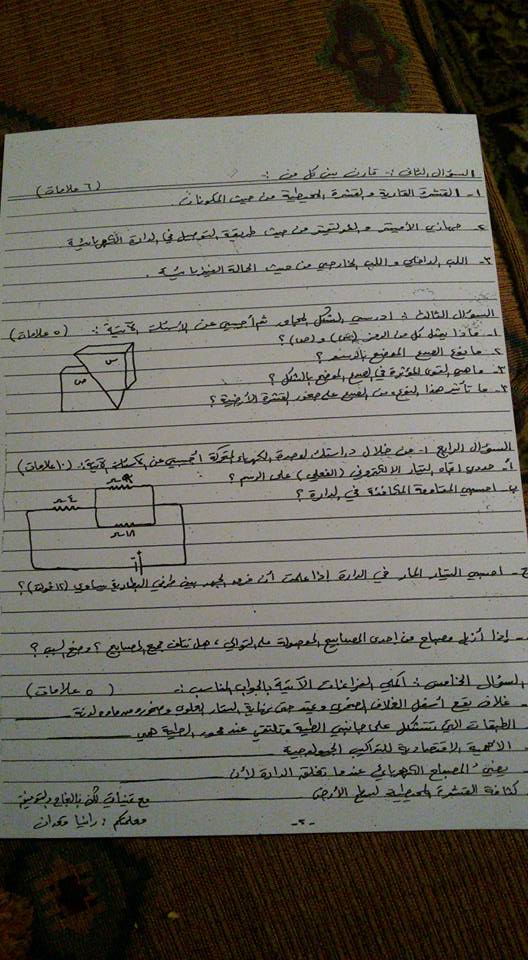 السؤال الثاني :- قارن بين كل من :- (٦ علامات)
١- القشرة القارية والقشرة المحيطية من حيث المكونات.
٢- جهازي الأميتر والفولتميتر من حيث طريقة التوصيل في الدارة الكهربائية.
٣- اللب الداخلي واللب الخارجي من حيث الحالة الفيزيائية.
السؤال الثالث :- ادرسي الشكل المجاور ثم أجيبي عن الأسئلة الآتية :- (٥ علامات)
١- ماذا يمثل كل من الرمز (س) و (ص) ؟
٢- ما نوع الصدع الموضح بالرسم ؟
٣- ما هي القوى المؤثرة في الصدع الموضح بالشكل ؟
٣- ما تأثير هذا النوع من الصدع على صخور القشرة الأرضية ؟
س
ص
السؤال الرابع ١- من خلال دراستك لوحدة الكهرباء المتحركة أجيبي عن الأسئلة الآتية: (١٠ علامات)
أ- حددي اتجاه التيار الالكتروني (الفعلي) على الرسم ؟
ب- احسبي المقاومة المكافئة في الدارة ؟
ج- احسبي التيار المار في الدارة اذا علمت أن فرق الجهد بين طرفي البطارية يساوي (١٢ فولت) ؟
- إذا أزيل مصباح من احدى المصابيح الموصولة على التوالي ، هل تتلف جميع المصابيح ؟ وضح السبب ؟
السؤال الخامس :- أكملي الفراغات الآتية بالجواب المناسب :- (٥ علامات)
- غلاف يقع أسفل الغلاف الصخري ويمتد حتى نهاية الستار العلوي وصخوره من مادة لدنة
الطبقات التي تتشكل على جانبي الطية وتلتقي عند محور الطية هي
- الأهمية الاقتصادية للتراكيب الجيولوجية
يضيء المصباح الكهربائي عندما تغلق الدارة لأن
كثافة القشرة المحيطية لسطح الأرض
مع تمنياتي لكن بالنجاح والتوفيق
معلمتكم : رانيا
-٢-